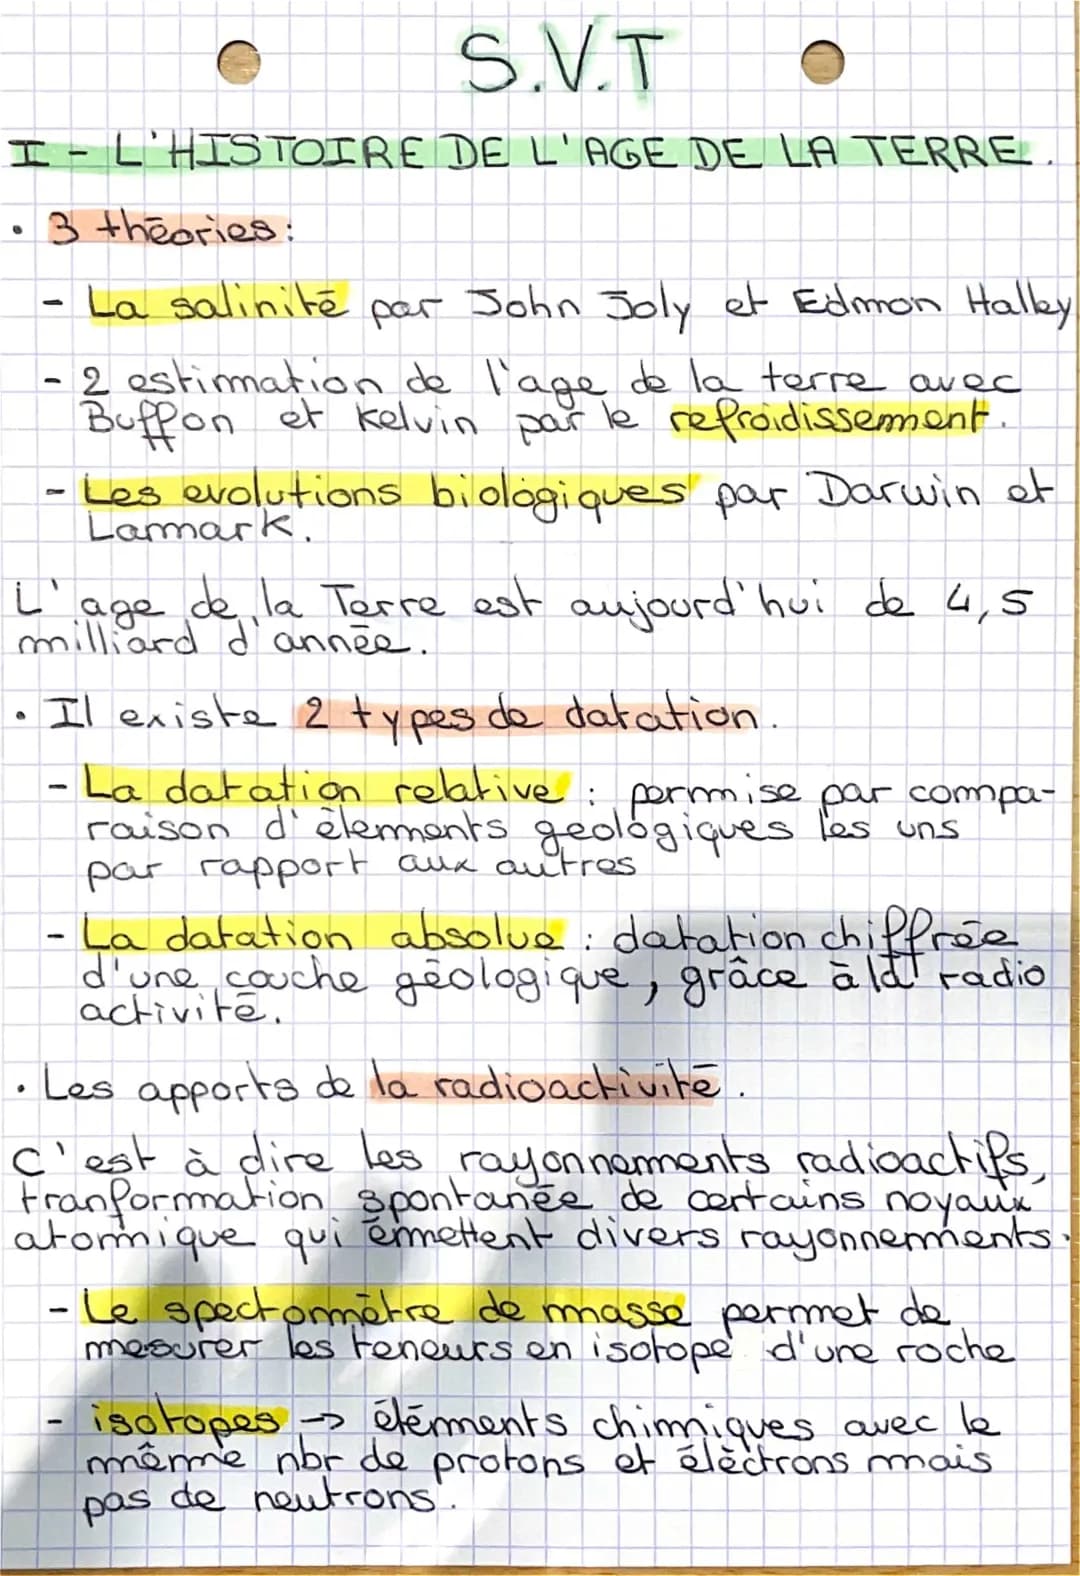 S.V.T
I - L'HISTOIRE DE L'AGE DE LA TERRE.
• 3 théories:
- La salinité par John Joly et Edmon Halley
- 2 estimation de l'age de la terre avec
Buffon et Kelvin par le refroidissement.
- Les evolutions biologiques par Darwin et
Lamark.
L'age de la Terre est aujourd'hui de 4,5
milliard d'année.
• Il existe 2 types de datation.
- La datation relative : permise par compa-
raison d'élements geologiques les uns
par rapport aux autres
- La datation absolue : datation chiffrée
d'une couche géologique, grâce à la radio
activité.
• Les apports de la radioactivité.
C'est à dire les rayonnements radioactifs,
tranformation spontanée de certains noyaux
atomique qui émettent divers rayonnements.
- Le spectomètre de masse permet de
mesurer les teneurs en isotope d'une roche
- isotopes → éléments chimiques avec le
même nbr de protons et éléctrons mais
pas de neutrons.